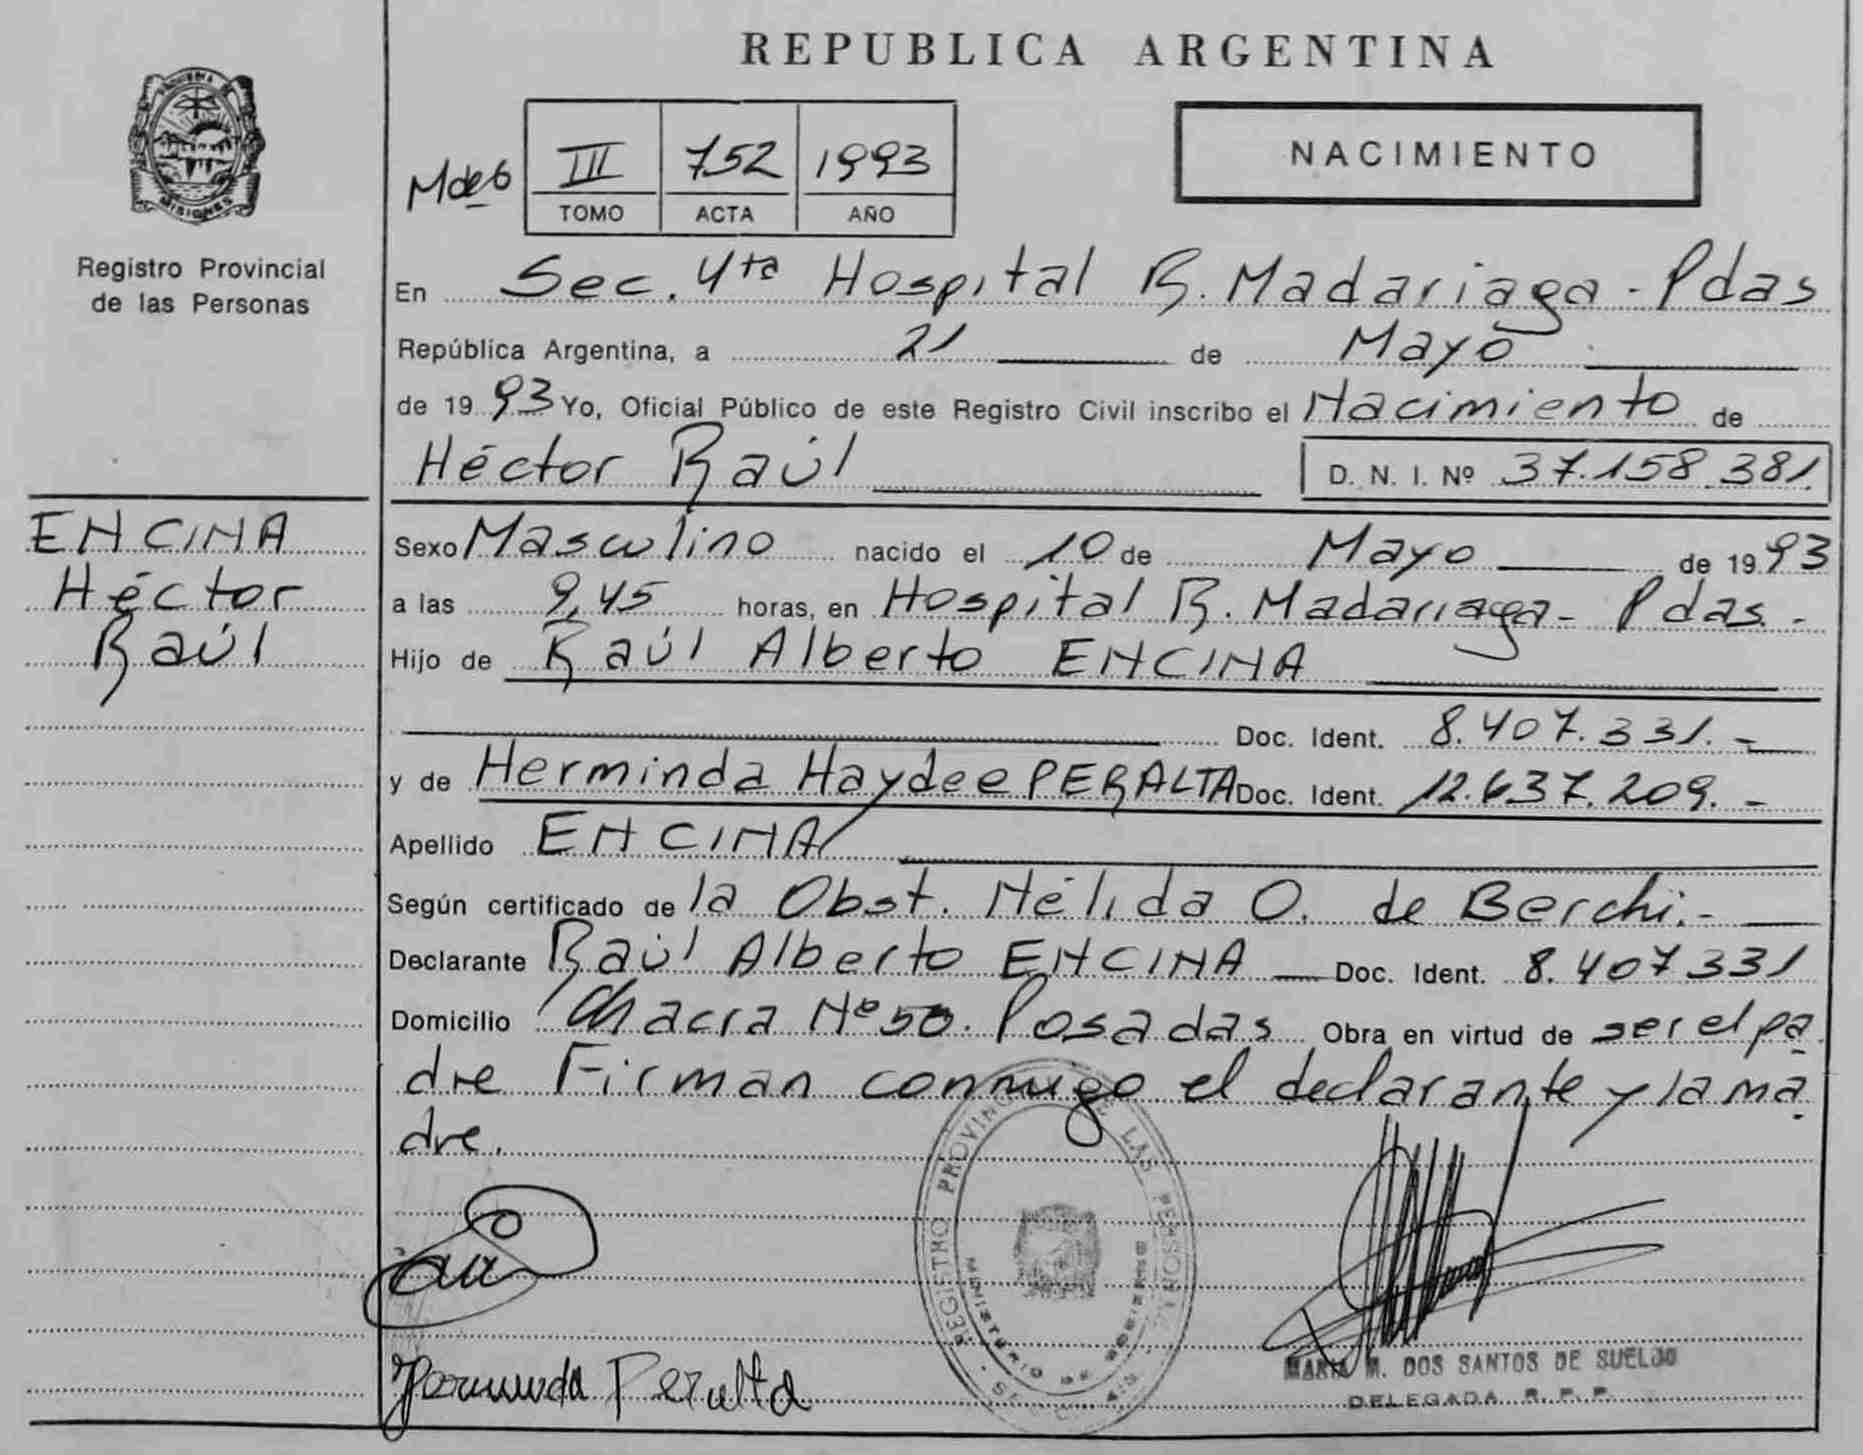 REPUBLICA ARGENTINA
MISIONES
Registro Provincial
de las Personas
Mdeo III 752 1993
TOMO ACTA AÑO
NACIMIENTO
En Sec. 4ta Hospital R. Madariaga - Pdas
República Argentina, a 21 de Mayo
de 1993 Yo, Oficial Público de este Registro Civil inscribo el Nacimiento de
Héctor Raúl D. N. I. Nº 37.158.381
ENCINA
Héctor
Raúl
Sexo Masculino nacido el 10 de Mayo de 1993
a las 9,45 horas, en Hospital R. Madariaga - Pdas. -
Hijo de Raúl Alberto ENCINA
Doc. Ident. 8.407.331. -
y de Herminda Haydee PERALTA Doc. Ident. 12.637.209. -
Apellido ENCINA
Según certificado de la Obst. Nélida O. de Berchi. -
Declarante Raúl Alberto ENCINA Doc. Ident. 8.407331
Domicilio Chacra Nº 50. Posadas Obra en virtud de ser el pa
dre Firman conmigo el declarante y la ma
dre.
REGISTRO PROVINCIAL DE LAS PERSONAS
MINISTERIO DE GOBIERNO
Herminda Peralta
MARIA M. DOS SANTOS DE SUELDO
DELEGADA R. P. P.